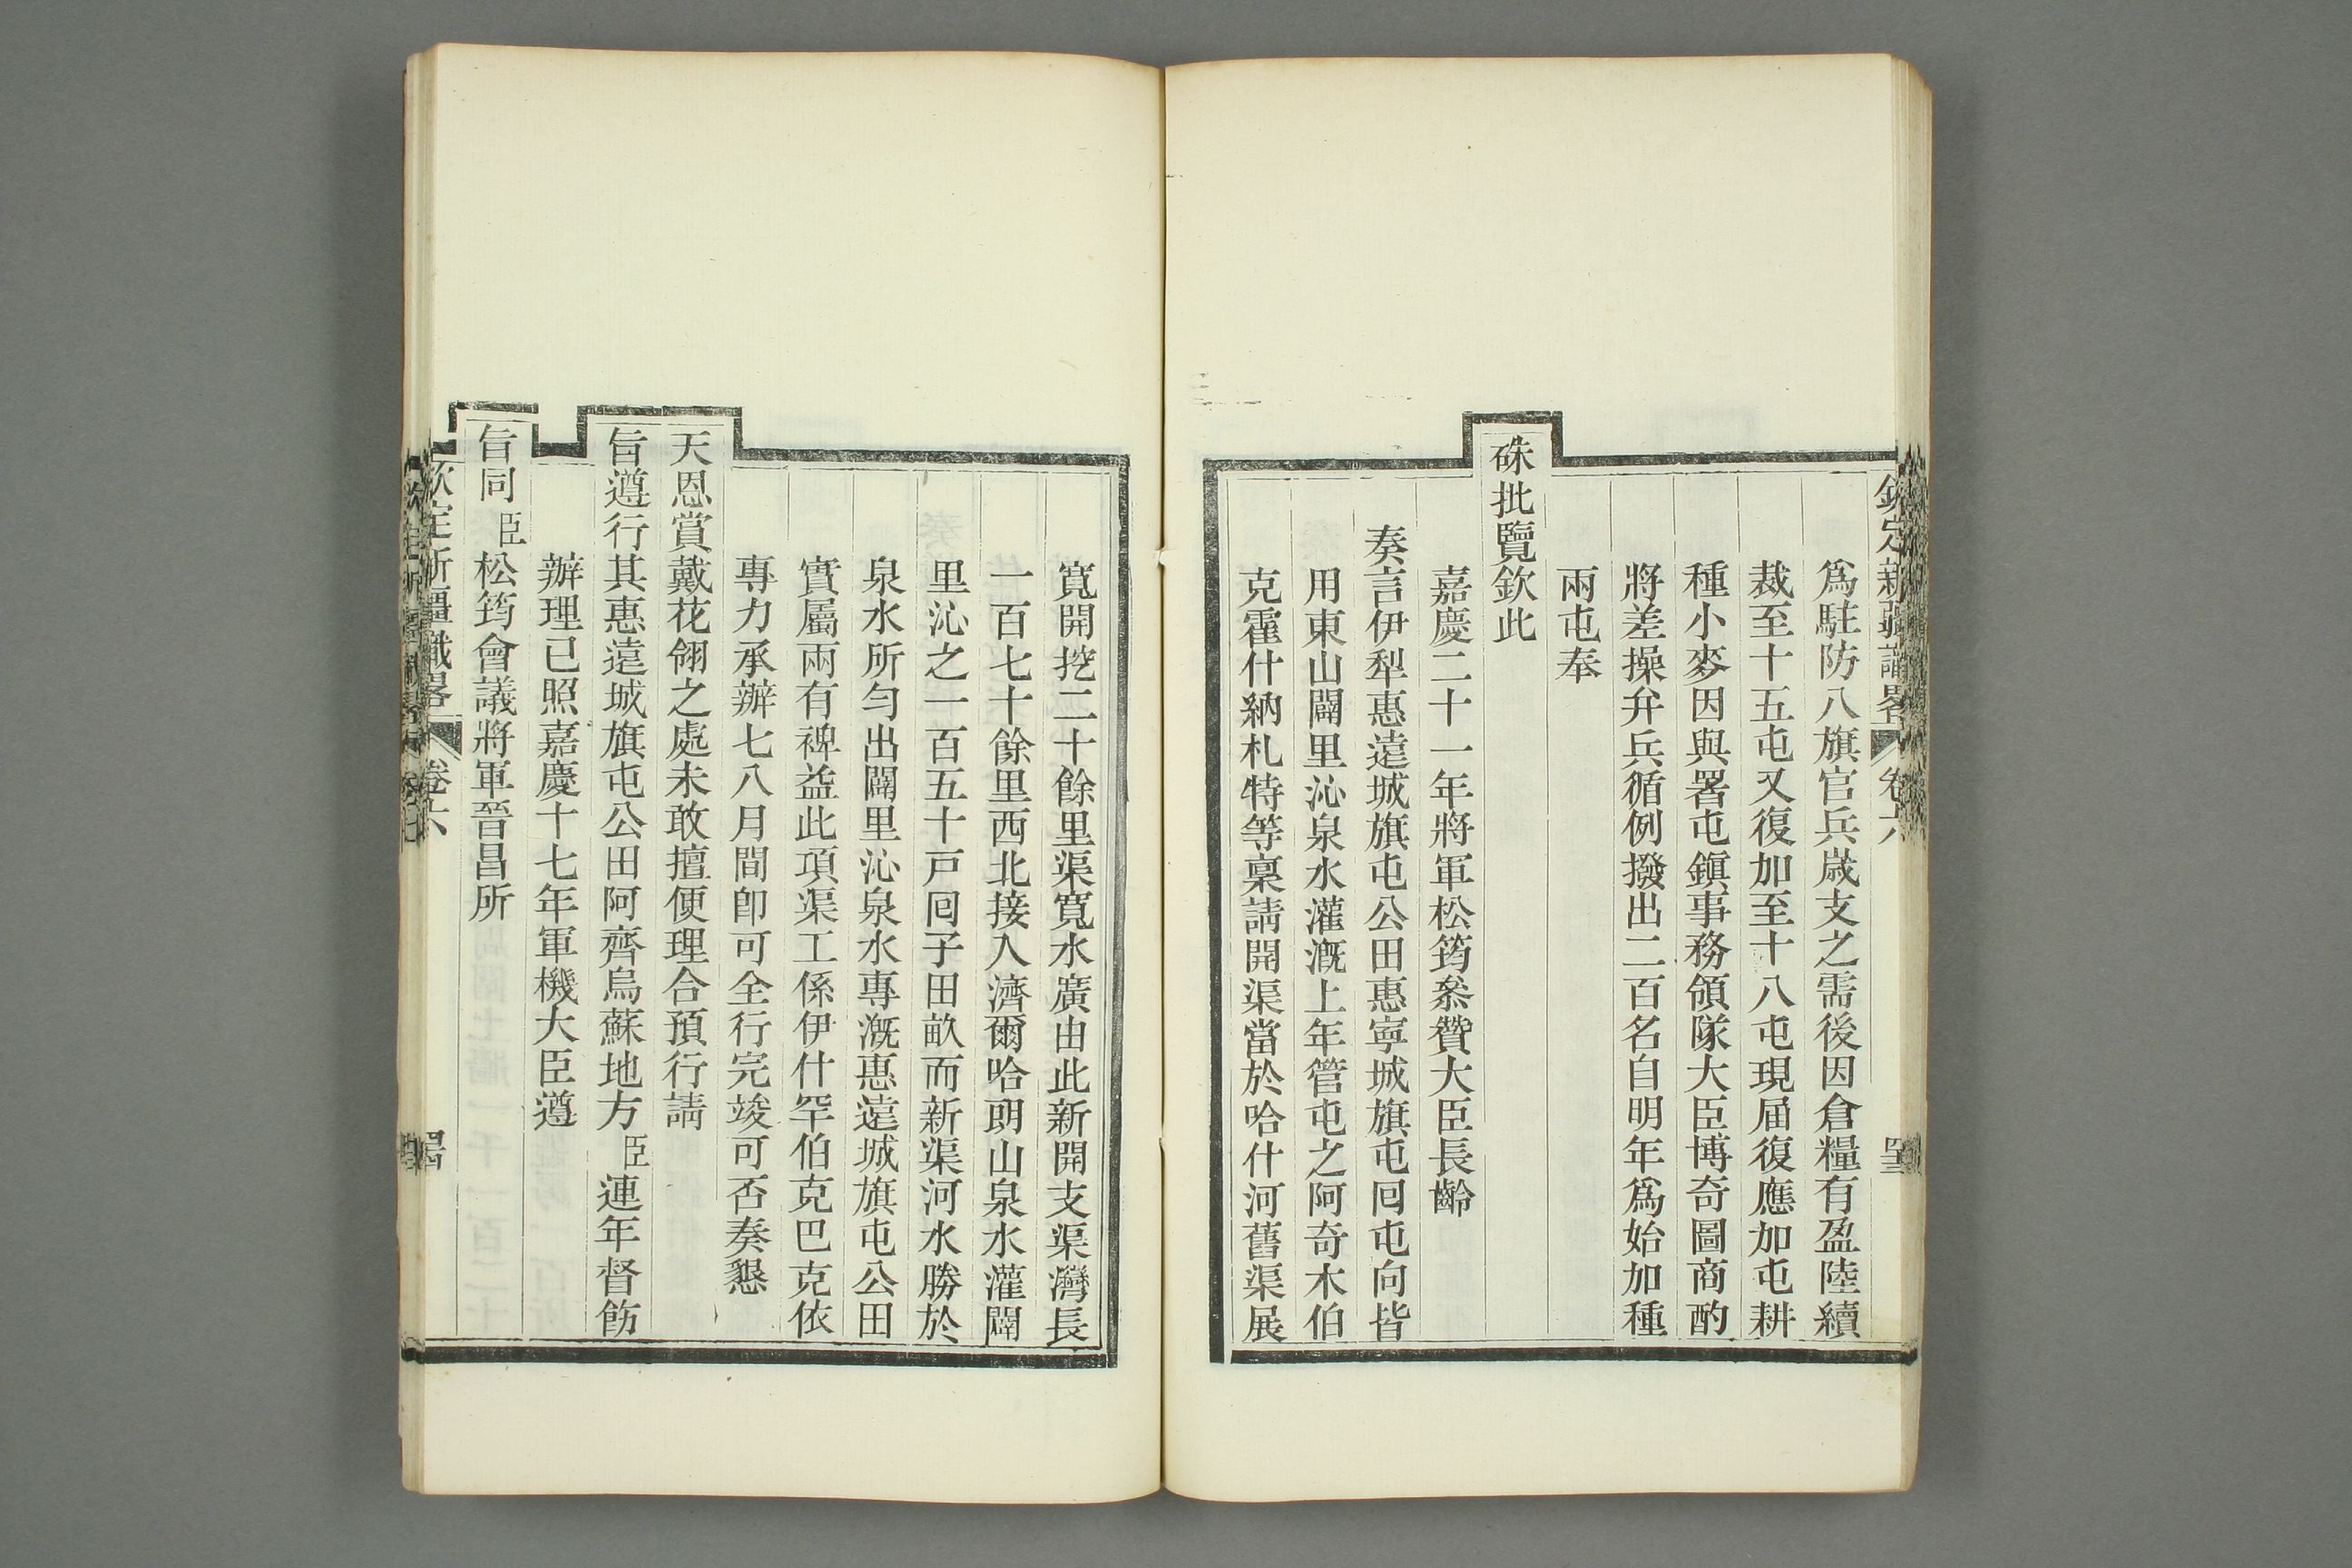 欽定新疆識畧
卷六
爲駐防八旗官兵歲支之需後因倉糧有盈陸續
裁至十五屯又復加至十八屯現届復應加屯耕
種小麥因與署屯鎭事務領隊大臣博奇圖商酌
將差操弁兵循例撥出二百名自明年爲始加種
兩屯奉
硃批覽欽此
嘉慶二十一年將軍松筠叅贊大臣長齡
奏言伊犁惠遠城旗屯公田惠寧城旗屯囘屯向皆
用東山闢里沁泉水灌漑上年管屯之阿奇木伯
克霍什納札特等稟請開渠當於哈什河舊渠展
寬開挖二十餘里渠寬水廣由此新開支渠灣長
一百七十餘里西北接入濟爾哈朗山泉水灌闢
里沁之一百五十戸囘子田畝而新渠河水勝於
泉水所勻出闢里沁泉水專漑惠遠城旗屯公田
實屬兩有裨益此項渠工係伊什罕伯克巴克依
專力承辦七八月間卽可全行完竣可否奏懇
天恩賞戴花翎之處未敢擅便理合預行請
旨遵行其惠遠城旗屯公田阿齊烏蘇地方臣連年督飭
辦理已照嘉慶十七年軍機大臣遵
旨同臣松筠會議將軍晉昌所
欽定新疆識畧
卷六